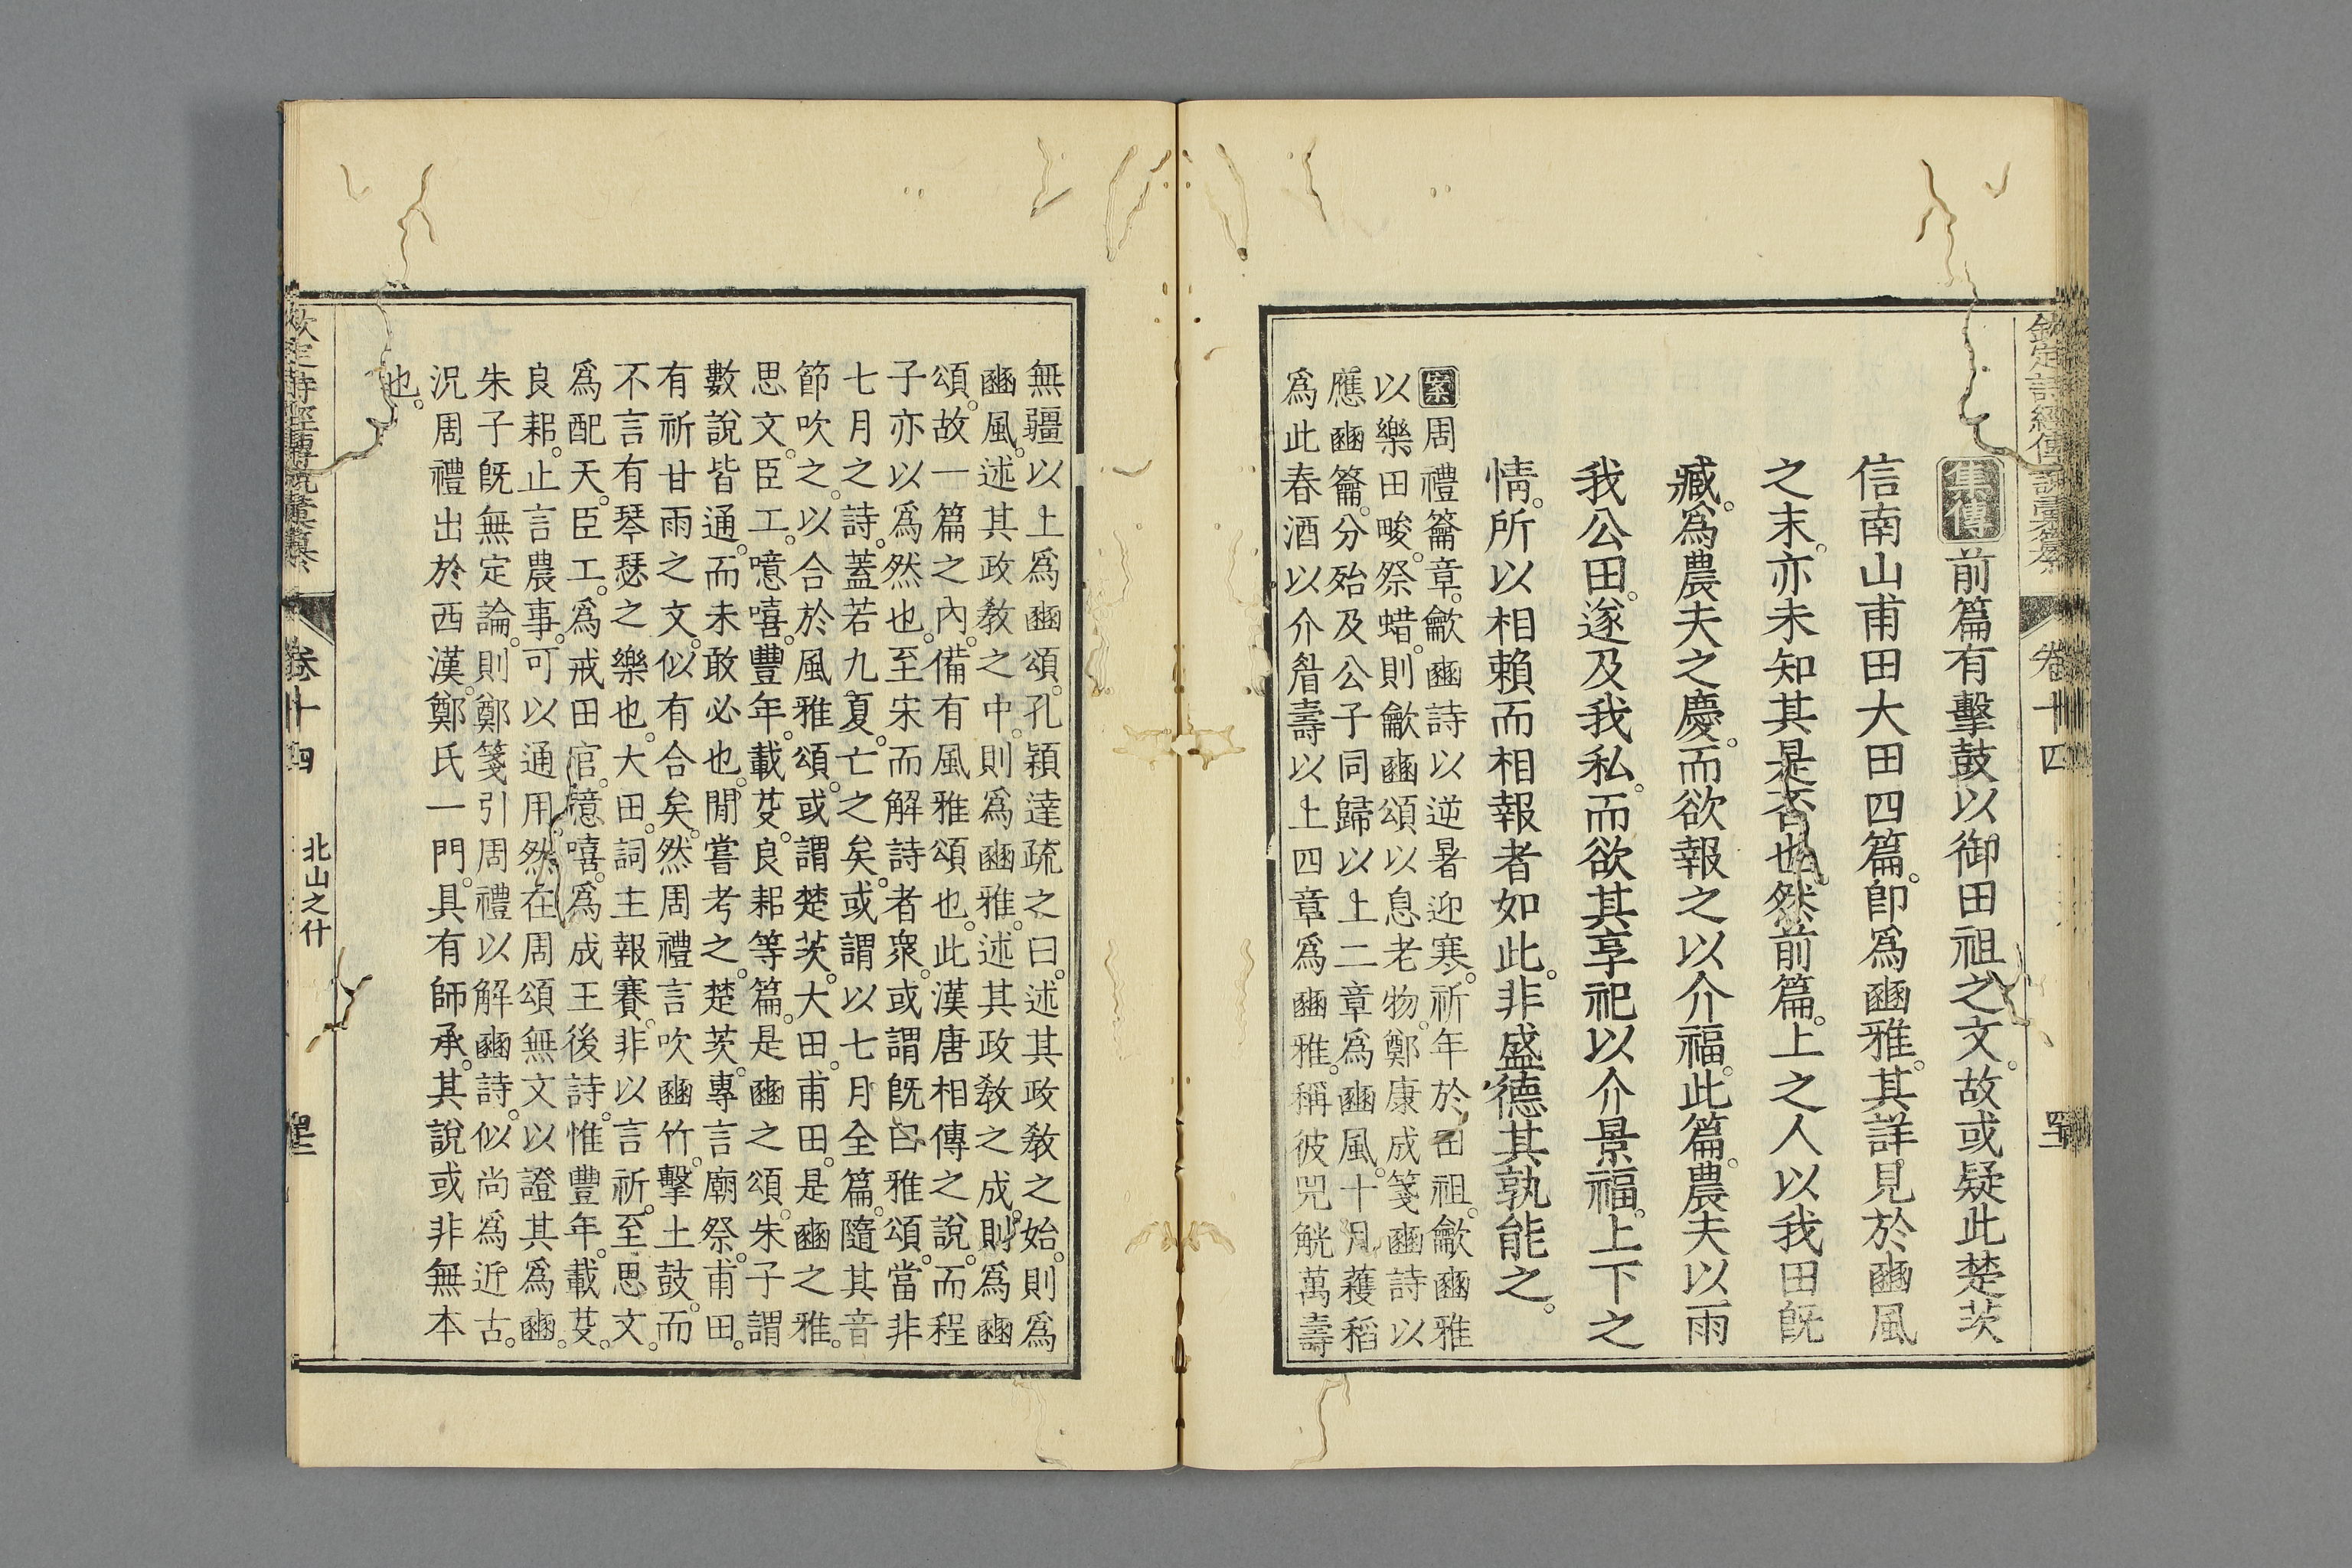 欽定詩經傳說彙纂 卷十四
集傳前篇有擊鼓以御田祖之文。故或疑此楚茨
信南山甫田大田四篇。卽爲豳雅。其詳見於豳風
之末。亦未知其是否也。然前篇。上之人以我田旣
臧。爲農夫之慶。而欲報之以介福。此篇。農夫以雨
我公田。遂及我私。而欲其享祀以介景福。上下之
情。所以相賴而相報者如此。非盛德其孰能之。
案周禮籥章。龡豳詩以逆暑迎寒。祈年於田祖。龡豳雅
以樂田畯。祭蜡。則龡豳頌以息老物。鄭康成箋豳詩以
應豳籥。分殆及公子同歸以上二章爲豳風。十月蘀稻
爲此春酒以介眉壽以上四章爲豳雅。稱彼兕觥萬壽
無疆以上爲豳頌。孔穎達疏之曰。述其政敎之始。則爲
豳風。述其政敎之中。則爲豳雅。述其政敎之成。則爲豳
頌。故一篇之內。備有風雅頌也。此漢唐相傳之說。而程
子亦以爲然也。至宋而解詩者衆。或謂旣曰雅頌。當非
七月之詩。蓋若九夏。亡之矣。或謂以七月全篇。隨其音
節吹之。以合於風雅頌。或謂楚茨。大田。甫田。是豳之雅。
思文。臣工。噫嘻。豐年。載芟。良耜等篇。是豳之頌。朱子謂
數說皆通。而未敢必也。閒嘗考之。楚茨。專言廟祭。甫田。
有祈甘雨之文。似有合矣。然周禮言吹豳竹。擊土鼓。而
不言有琴瑟之樂也。大田。詞主報賽。非以言祈。至思文。
爲配天。臣工。爲戒田官。噫嘻。爲成王後詩。惟豐年。載芟。
良耜。止言農事。可以通用。然在周頌無文以證其爲豳。
朱子旣無定論。則鄭箋引周禮以解豳詩。似尚爲近古。
況周禮出於西漢。鄭氏一門。具有師承。其說或非無本
也。
欽定詩經傳說彙纂 卷十四 北山之什